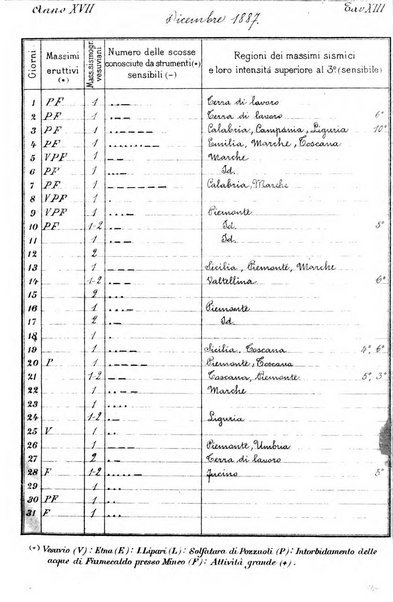 Anno XVII Dicembre 1887. Tav XIII
Giorni | Massimi eruttivi (*) | Mass. sismogr. vesuviani | Numero delle scosse conosciute da strumenti (•) sensibili (–) | Regioni dei massimi sismici e loro intensità superiore al 3º (sensibile)
1 PF 1 Terra di lavoro
2 PF 1 Terra di lavoro 6º
3 PF 1 Calabria, Campania, Liguria 10º
4 PF 1 Emilia, Marche, Toscana
5 VPF 1 Marche
6 PF 1 Id.
7 PF 1 Calabria, Marche
8 VPF 1
9 VPF 1 Piemonte
10 PF 1-2 Id. 5º
11 1 Id.
12 2
13 1 Sicilia, Piemonte, Marche
14 1-2 Valtellina 6º
15 2
16 1 Piemonte
17 2 Id.
18 1
19 1 Sicilia, Toscana 4º, 6º
20 P 1 Piemonte, Toscana
21 1-2 Toscana, Piemonte 5º, 3º
22 1 Marche
23 1
24 1-2 Liguria
25 V 1
26 1 Piemonte, Umbria
27 2 Terra di lavoro
28 F 1-2 Fucino
29 1
30 PF 1
31 F 1
(*) Vesuvio (V): Etna (E): I. Lipari (L): Solfatara di Pozzuoli (P): Intorbidamento delle
acque di Fiumecaldo presso Mineo (F): Attività grande (+).